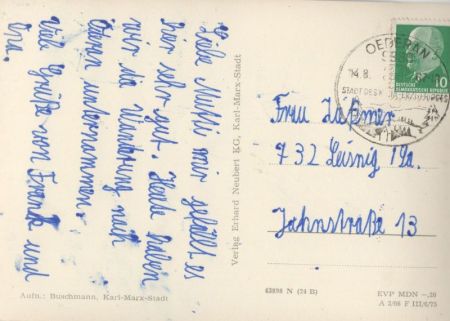 Liebe Mutti mir gefällt es
hier sehr gut Heute haben
wir die
unternommen.
Viele Grüße von Frank und
Ina.
Verlag Erhard Neubert KG, Karl-Marx-Stadt
OEDERAN
14.8.
10
DEUTSCHE
DEMOKRATISCHE REPUBLIK
Frau Laßmer
732 Leisnig /Sa.
Jahnstraße 13
Aufn.: Buschmann, Karl-Marx-Stadt
43898 N (24 B)
EVP MDN –,20
A 2/66 F III/6/75